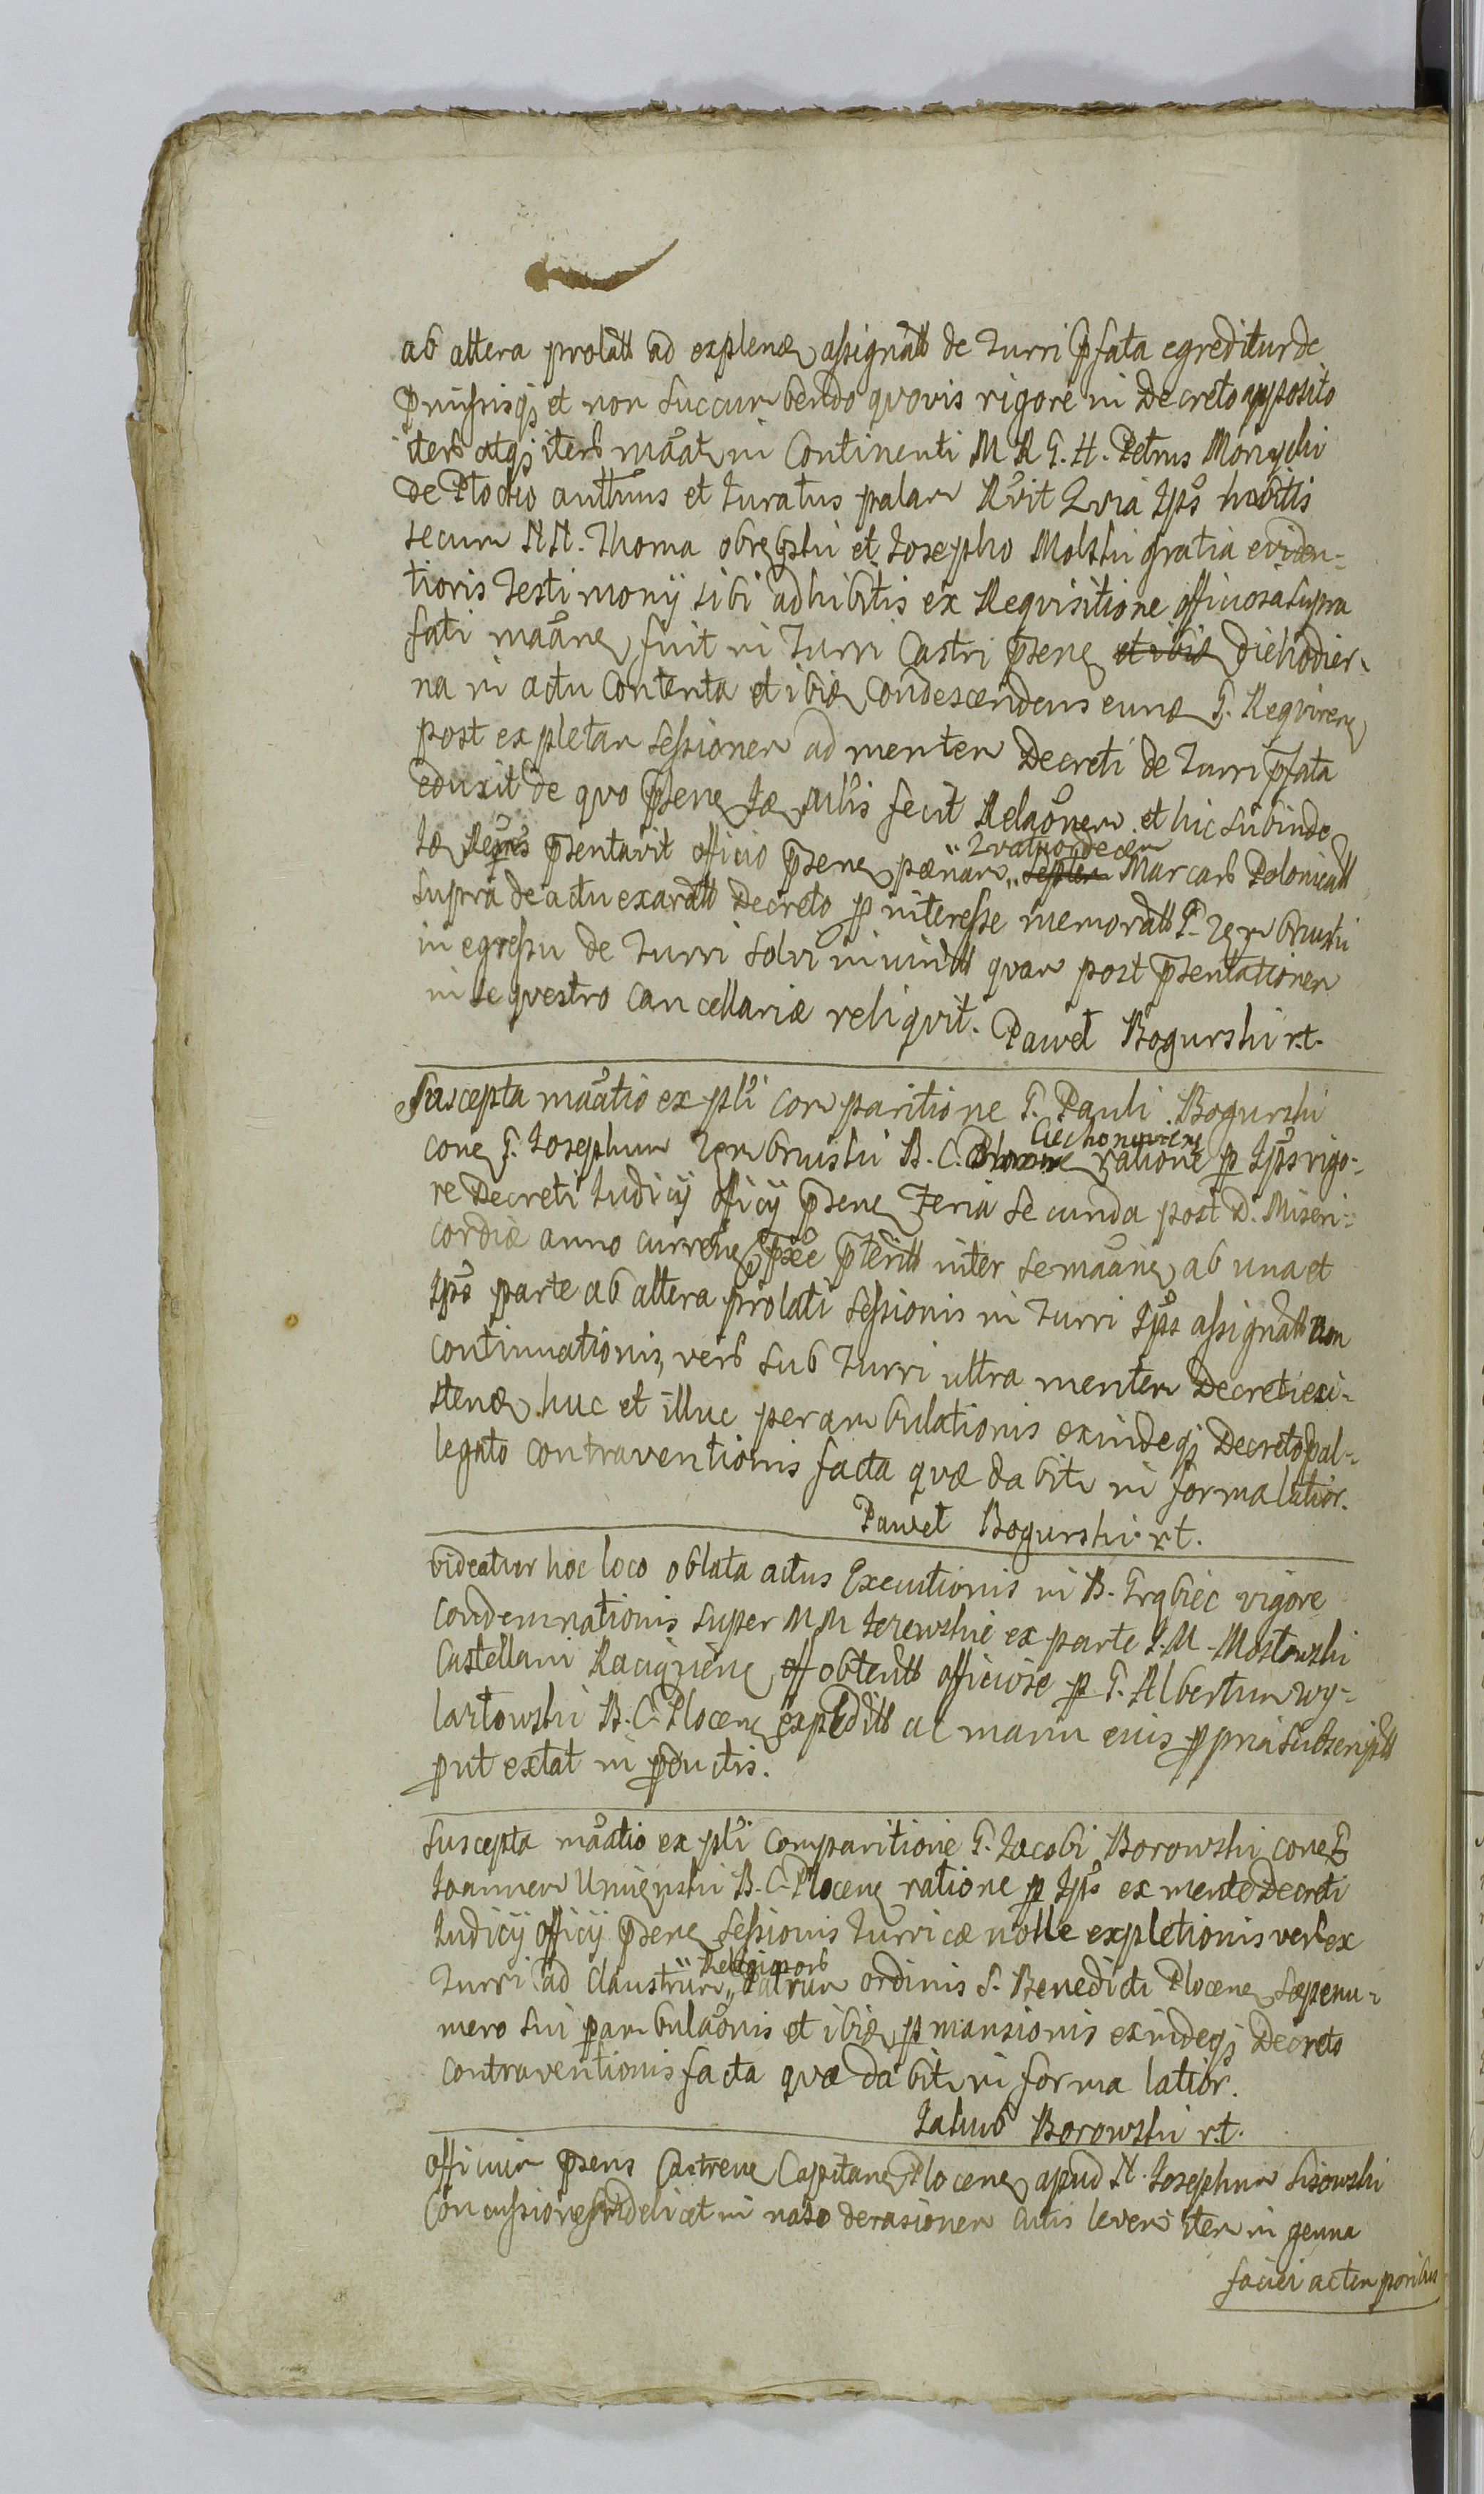 ab altera prolatt ad explend assignatt de Turri pfata egreditur de
pmissisq et non succumbendo quovis rigore in Decreto apposito
iterũ atq iterũ maãtr in Continenti M R G. H. Petrus
De Plocko authmus et Juratus palam Rvit Quia Ips habitis
secum NN. Thoma obrębski et Josepho Molski gratia eviden=
tioris Testimonij sibi adhibitis ex Requisitione officiosa supra
fati maãne fuit in Turri Castri psene et ibid die hodier=
na in actu Contenta et ibid Condescendens eund G. Requirene
post expletam sessionem ad mentem Decreti de Turri pfata
eduxit de quo psene Id Mlis fecit Relaõnem et hic subinde
Id psentavit officio psene pœnam " septem Marcarũ Polonicatt
" Quatuordecem
supra de actu exaratt Decreto p interesse memoratt G. Zembruski
in egressu de Turri solvi iniunctt quam post psentationem
in sequestro Cancellariæ reliquit. Paweł Bogurski r.t.
Suscepta maãtio ex psli comparitione G. Pauli Bogurski
cone G. Josephum Zembruski B. C. Plocene ratione p Ips rigo=
Ciechanoviene
re Decreti Judicij officij psene Feria secunda post D. Miseri=
cordiæ anno currene pxe pteritt inter se maãne ab una et
Ips parte ab altera prolati sessionis in Turri Ips assignatt non
continuationis, verũ sub Turri ultra mentem Decreti exi=
stend huc et illuc perambulationis exindeq Decreto pal=
legato contraventionis facta quæ dabitr in forma latior.
Paweł Bogurski r.t.
Videatur hoc loco oblata actus Executionis in B. Grąbiec vigore
condemnationis super MM Jezewskie ex parte J.M. Mostowski
Castellani Raciąziene off obtentt officiose p G. Albertum Wy=
lazłowski B. C. Plocene expeditt ac manu eius ppria subscriptt
put extat in pductis.
Suscepta maãtio ex psli comparitione G. Jacobi Borowski cone G
Joannem Umięnski B. C. Plocene ratione p Ips ex mente Decreti
Judicij officij psene sessionis Turricæ nolle expletionis verũ ex
Turri ad Claustrum " Patrum ordinis S. Benedicti Plocene sæpenu=
" Religiosorũ
mero sui pambulaõnis et ibid pmansionis exindeq Decreto
contraventionis facta quæ dabitr in forma latior.
Jakub Borowski r.t.
Officium psens Castrene Capitane Plocene apud N. Josephum Lisowski
Concussiones videlicet in naso derasionem cutis levem item in genua
faciei a